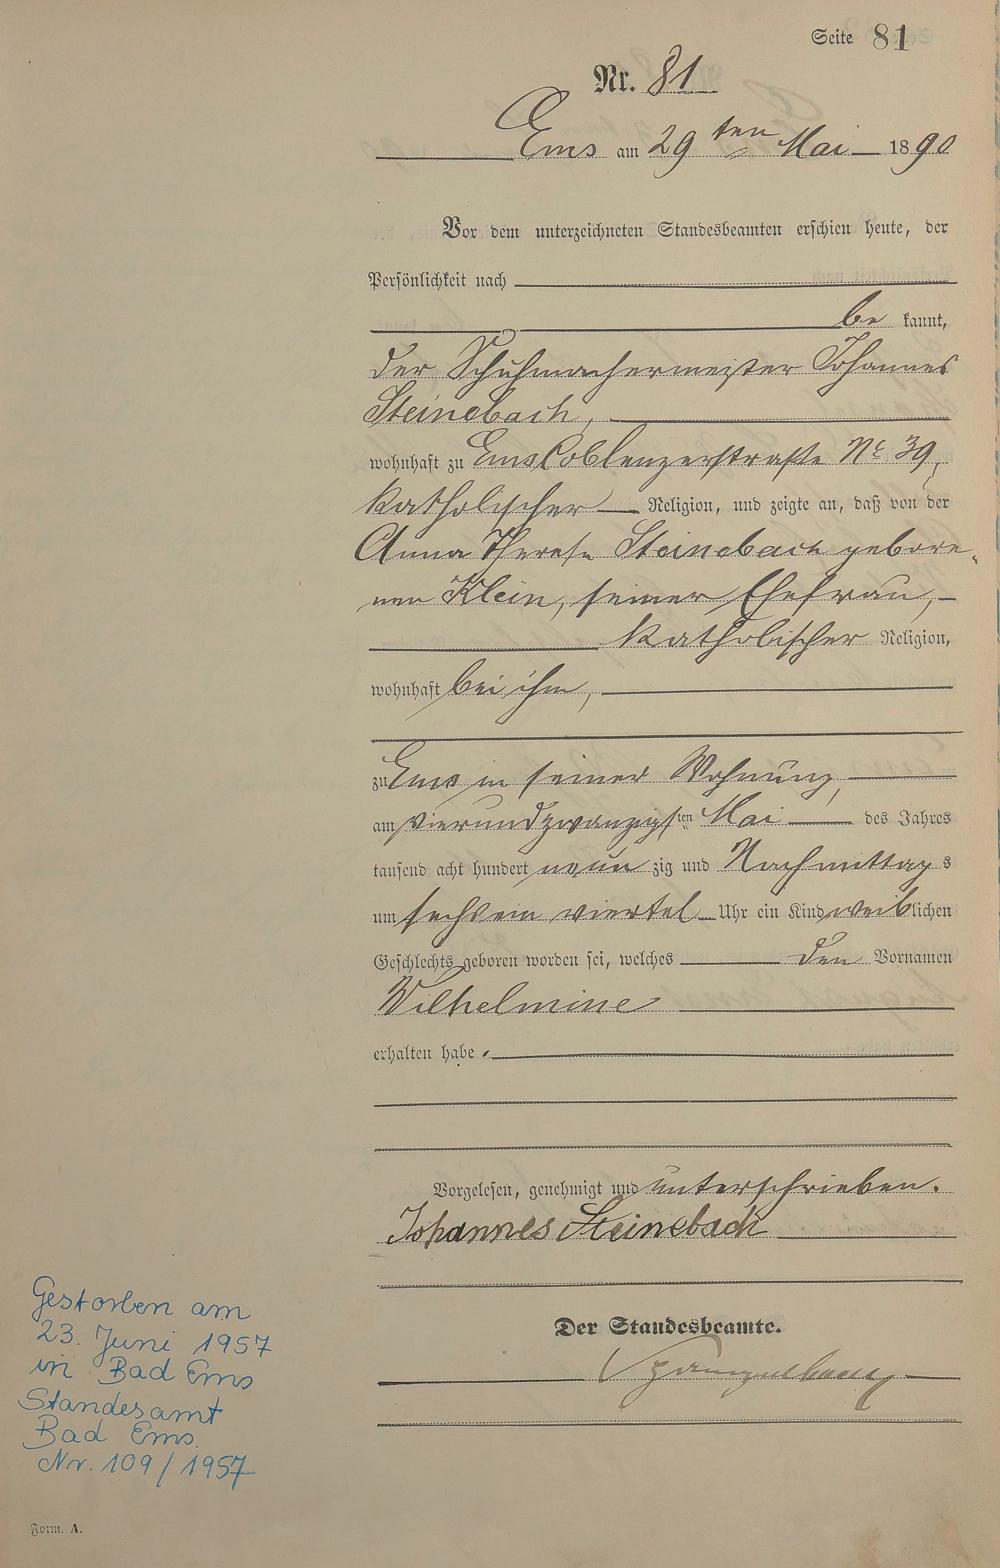 Seite 81
Nr. 81
Ems am 29ten Mai 1890
Vor dem unterzeichneten Standesbeamten erschien heute, der
Persönlichkeit nach
be kannt,
der Schuhmachermeister Johannes
Steinebach,
wohnhaft zu Ems Coblenzerstraße No 39,
katholischer Religion, und zeigte an, daß von der
Anna Therese Steinebach gebore-
nen Klein, seiner Ehefrau,
katholischer Religion,
wohnhaft bei ihm,
zu Ems in seiner Wohnung,
am vierundzwanzigsten Mai des Jahres
tausend acht hundert neun zig und Nachmittags
um sechs ein viertel Uhr ein Kind weiblichen
Geschlechts geboren worden sei, welches den Vornamen
Wilhelmine
erhalten habe.
Vorgelesen, genehmigt und unterschrieben.
Johannes Steinebach
Der Standesbeamte.
Gestorben am
23. Juni 1957
in Bad Ems
Standesamt
Bad Ems
Nr. 109/1957
Form. A.